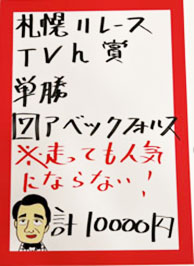 札幌11レース
TVh賞
単勝
7アベックフォルス
※走っても人気
にならない!
計10000円